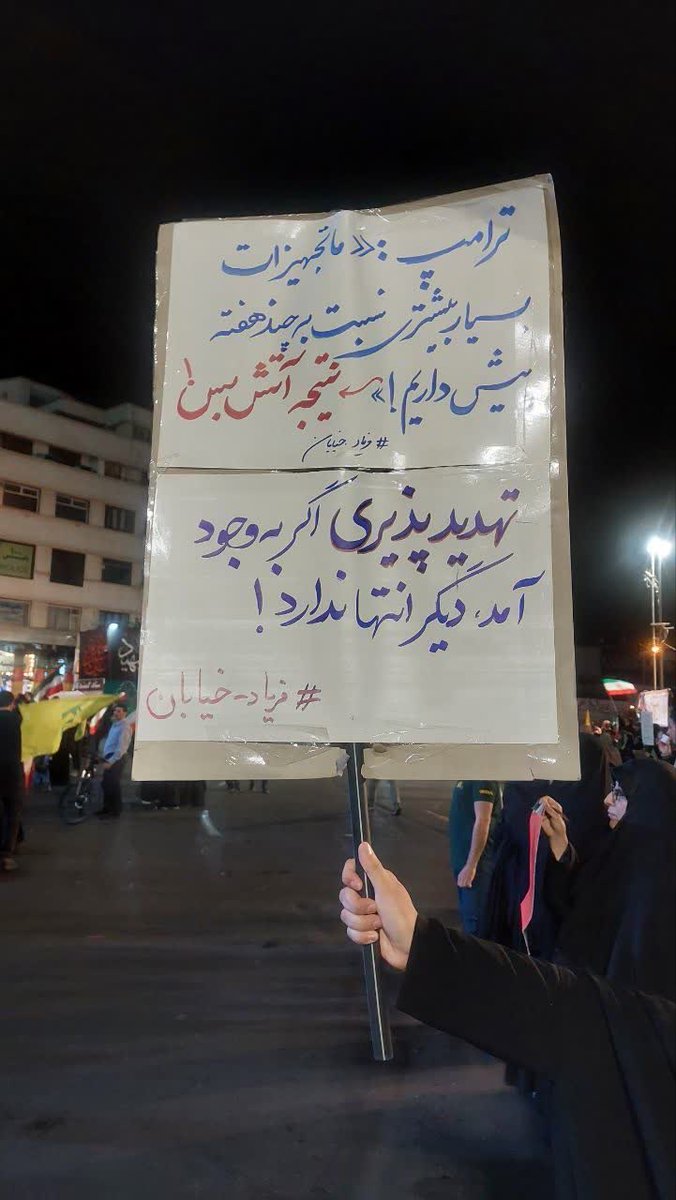 ترامپ: «ما تجهیزات
بسیار بیشتری نسبت به چند هفته
پیش داریم!» ← نتیجه آتش بس!
#فریاد_خیابان
تهدیدپذیری اگر به وجود
آمد، دیگر انتها ندارد!
#فریاد-خیابان